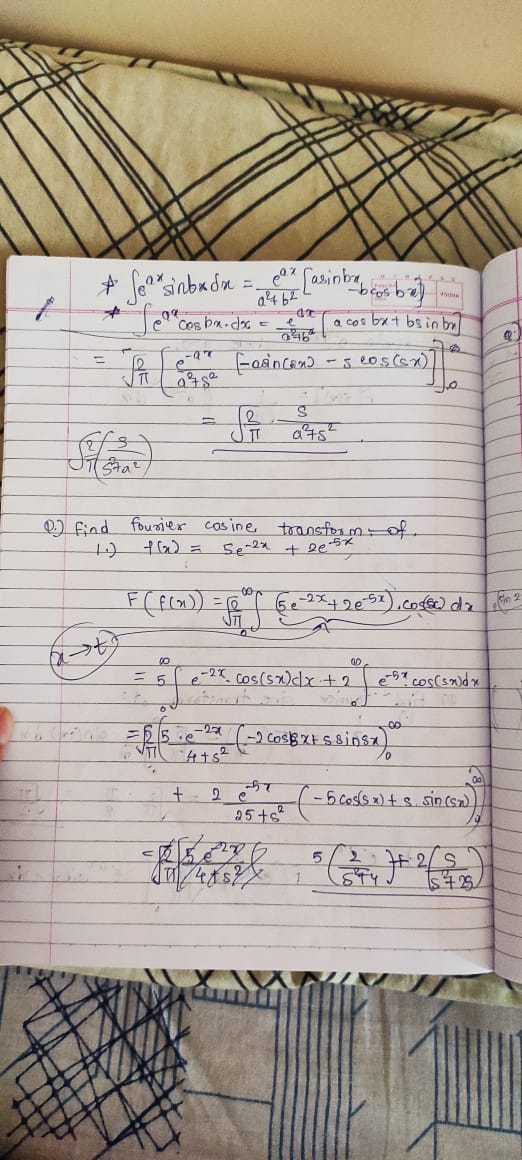 * ∫e^ax sinbx dx = e^ax/(a²+b²) [asinbx - bcosbx]
* ∫e^ax cosbx.dx = e^ax/(a²+b²) [a cos bx + b sin bx]
= √(2/π) [e^-ax/(a²+s²) [-asin(sx) - s cos(sx)]]₀^∞
= √(2/π) . s/(a²+s²)
√(2/π) (s/(s²+a²))
Q.) Find fourier cosine transform of.
1.) f(x) = 5e^-2x + 2e^-5x
F(f(x)) = √(2/π) ∫₀^∞ (5e^-2x + 2e^-5x).cos(sx) dx
x→t
= 5 ∫₀^∞ e^-2x. cos(sx)dx + 2 ∫₀^∞ e^-5x cos(sx)dx
= √(2/π) [5.e^-2x/(4+s²) (-2cossx + s sinsx)₀^∞
+ 2 e^-5x/(25+s²) (-5cos(sx) + s. sin(sx))₀^∞]
= √(2/π) [5e^-2x/(4+s²) 5(2/(s²+4)) + 2(5/(s²+25))